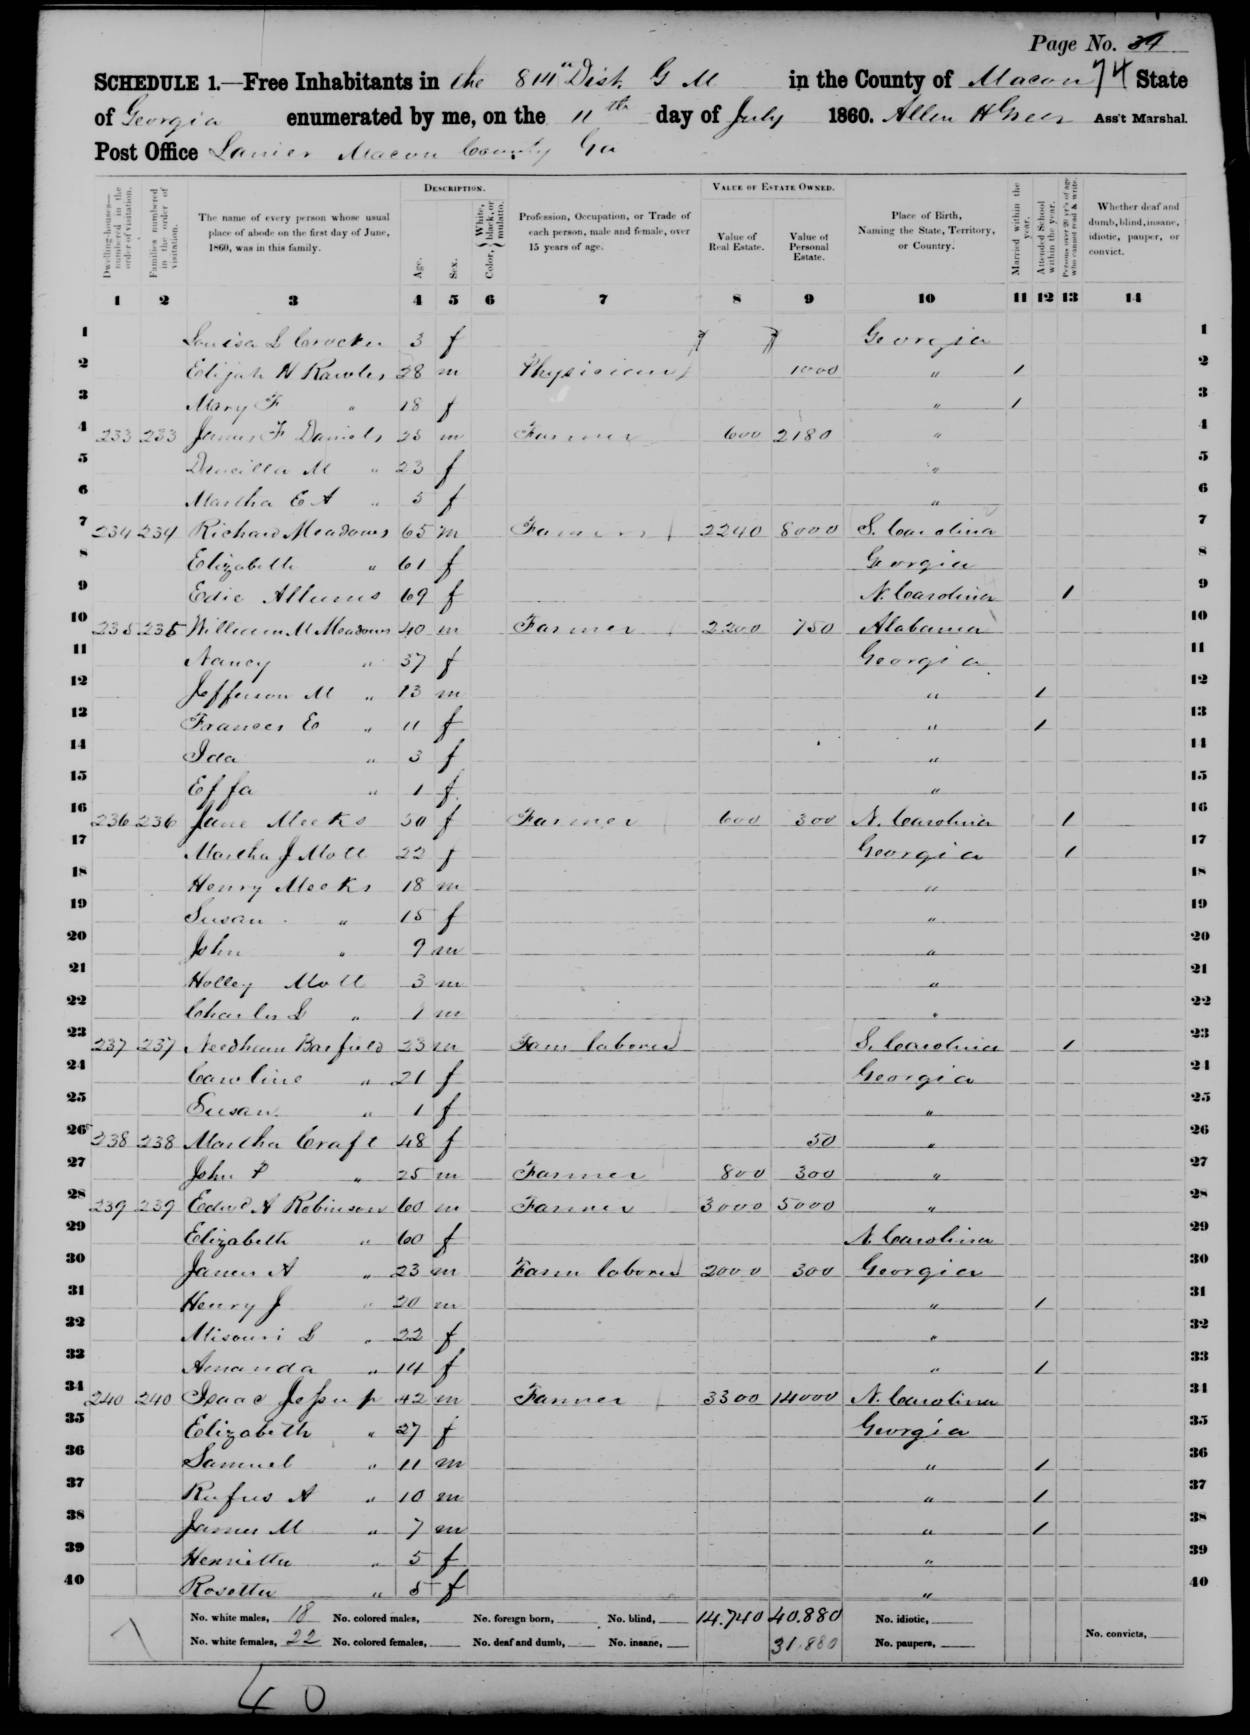 Page No. 34
SCHEDULE 1.—Free Inhabitants in the 814th Dist. G M in the County of Macon 74 State
of Georgia enumerated by me, on the 11th day of July 1860. Allen H Greer Ass't Marshal.
Post Office Lanier Macon County Ga
DESCRIPTION. VALUE OF ESTATE OWNED.
Dwelling-houses—numbered in the order of visitation. Families numbered in the order of visitation. The name of every person whose usual place of abode on the first day of June, 1860, was in this family. Age. Sex. Color, { White, black, or mulatto. Profession, Occupation, or Trade of each person, male and female, over 15 years of age. Value of Real Estate. Value of Personal Estate. Place of Birth, Naming the State, Territory, or Country. Married within the year. Attended School within the year. Persons over 20 yr's of age who cannot read & write. Whether deaf and dumb, blind, insane, idiotic, pauper, or convict.
1 2 3 4 5 6 7 8 9 10 11 12 13 14
1 Louisa L Crocker 3 f Georgia 1
2 Elijah H Rawles 28 m Physician 1000 " 1 2
3 Mary F " 18 f " 1 3
4 233 233 James F Daniels 25 m Farmer 600 2180 " 4
5 Drucilla M " 23 f " 5
6 Martha E A " 5 f " 6
7 234 234 Richard Meadows 65 m Farmer 2240 8000 S. Carolina 7
8 Elizabeth " 61 f Georgia 8
9 Edie Allums 69 f N. Carolina 1 9
10 235 235 William M Meadows 40 m Farmer 2200 750 Alabama 10
11 Nancy " 37 f Georgia 11
12 Jefferson M " 13 m " 1 12
13 Frances E " 11 f " 1 13
14 Ida " 3 f " 14
15 Effa " 1 f " 15
16 236 236 Jane Meeks 50 f Farmer 600 300 N. Carolina 1 16
17 Martha J Mott 22 f Georgia 1 17
18 Henry Meeks 18 m " 18
19 Susan " 15 f " 19
20 John " 9 m " 20
21 Holley Mott 3 m " 21
22 Charles L " 1 m " 22
23 237 237 Needham Barfield 23 m Farm laborer S. Carolina 1 23
24 Caroline " 21 f Georgia 24
25 Susan " 1 f " 25
26 238 238 Martha Craft 48 f 50 " 26
27 John P " 25 m Farmer 800 300 " 27
28 239 239 Edwd A Robinson 60 m Farmer 3000 5000 " 28
29 Elizabeth " 60 f N. Carolina 29
30 James A " 23 m Farm laborer 2000 300 Georgia 30
31 Henry J " 20 m " 1 31
32 Misouri L " 22 f " 32
33 Amanda " 14 f " 1 33
34 240 240 Isaac Jessup 42 m Farmer 3300 14000 N. Carolina 34
35 Elizabeth " 27 f Georgia 35
36 Samuel " 11 m " 1 36
37 Rufus A " 10 m " 1 37
38 James M " 7 m " 1 38
39 Henrietta " 5 f " 39
40 Rosetta " 5 f " 40
No. white males, 18 No. colored males, No. foreign born, No. blind, 14.740 40.880 No. idiotic,
No. white females, 22 No. colored females, No. deaf and dumb, No. insane, 31.880 No. paupers, No. convicts,
40